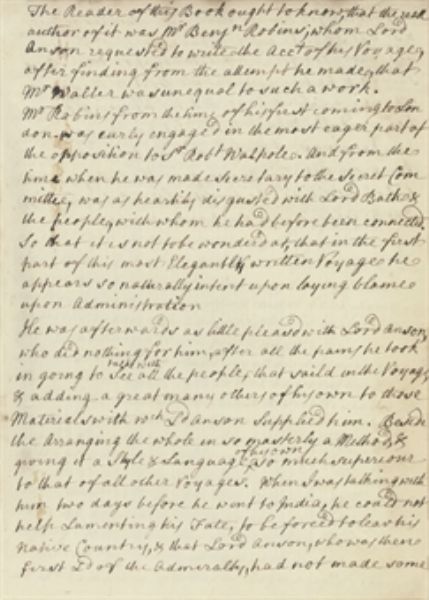 The Reader of this Book ought to know, that the real
author of it was Mr Benjn Robins; whom Lord
Anson requested to write the Acct of his Voyage,
after finding from the attempt he made, that
Mr Walter was unequal to such a work.
Mr Robins from the time of his first coming to Lon
don, was early engaged in the most eager part of
the opposition to Sr Robt Walpole. And from the
time when he was made Secretary to the Secret Com
mittee, was as heartily disgusted with Lord Bath &
the people, with whom he had before been connected.
So that it is not to be wonderd at, that in the first
part of this most Elegantly written Voyage he
appears so naturally intent upon laying blame
upon Administration
He was afterwards as little pleas'd with Lord Anson,
who did nothing for him, after all the pains he took
in going to See all the people, that sail'd in the Voyage
talk with
& adding a great many others of his own to those
Materials with wch Ld Anson Supplied him. Beside
the Arranging the whole in so masterly a Method, &
giving it a Style & Language, so much superiour
of his own
to that of all other Voyages. When I was talking with
him two days before he went to India, he could not
help Lamenting his Fate, to be forced to leave his
Native Country, & that Lord Anson, who was then
first Ld of the Admiralty, had not made some